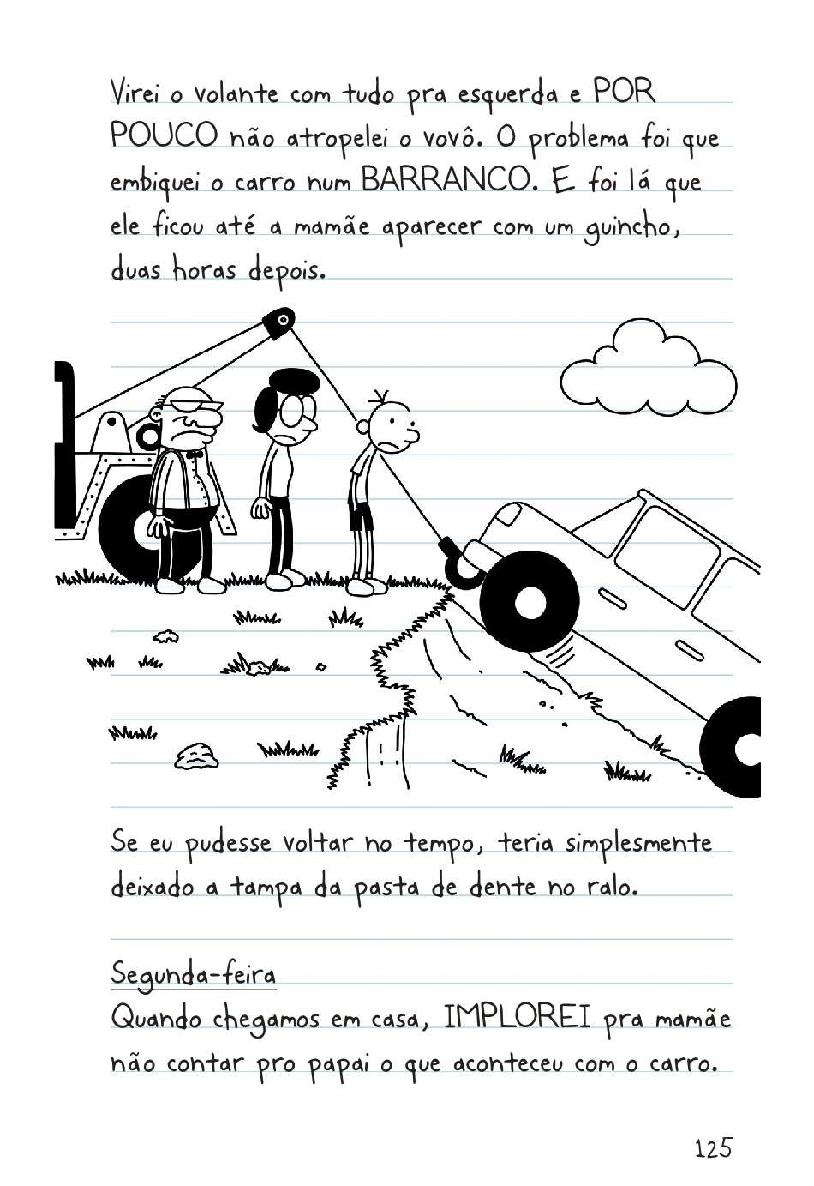 Virei o volante com tudo pra esquerda e POR
POUCO não atropelei o vovô. O problema foi que
embiquei o carro num BARRANCO. E foi lá que
ele ficou até a mamãe aparecer com um guincho,
duas horas depois.
Se eu pudesse voltar no tempo, teria simplesmente
deixado a tampa da pasta de dente no ralo.
Segunda-feira
Quando chegamos em casa, IMPLOREI pra mamãe
não contar pro papai o que aconteceu com o carro.
125